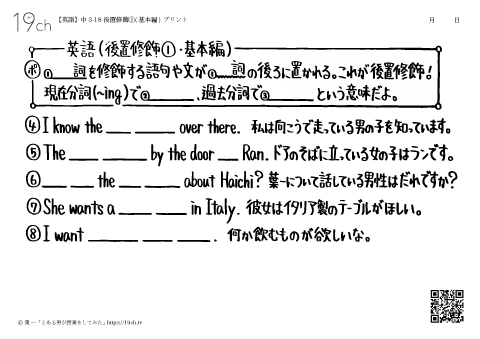 19ch 【英語】中3-18 後置修飾①(基本編) プリント 月 日
英語(後置修飾①・基本編)
ポ ⓐ____詞を修飾する語句や文がⓐ____詞の後ろに置かれる。これが後置修飾!
現在分詞(~ing)で②________、過去分詞で③________という意味だよ。
④I know the ____ ____ over there. 私は向こうで走っている男の子を知っています。
⑤The ____ ____ by the door ____ Ran. ドアのそばに立っている女の子はランです。
⑥____ ____ the ____ ____ about Haichi? 葉一について話している男性はだれですか?
⑦She wants a ____ ____ in Italy. 彼女はイタリア製のテーブルがほしい。
⑧I want ____ ____ ____. 何か飲むものが欲しいな。
© 葉一「とある男が授業をしてみた」https://19ch.tv